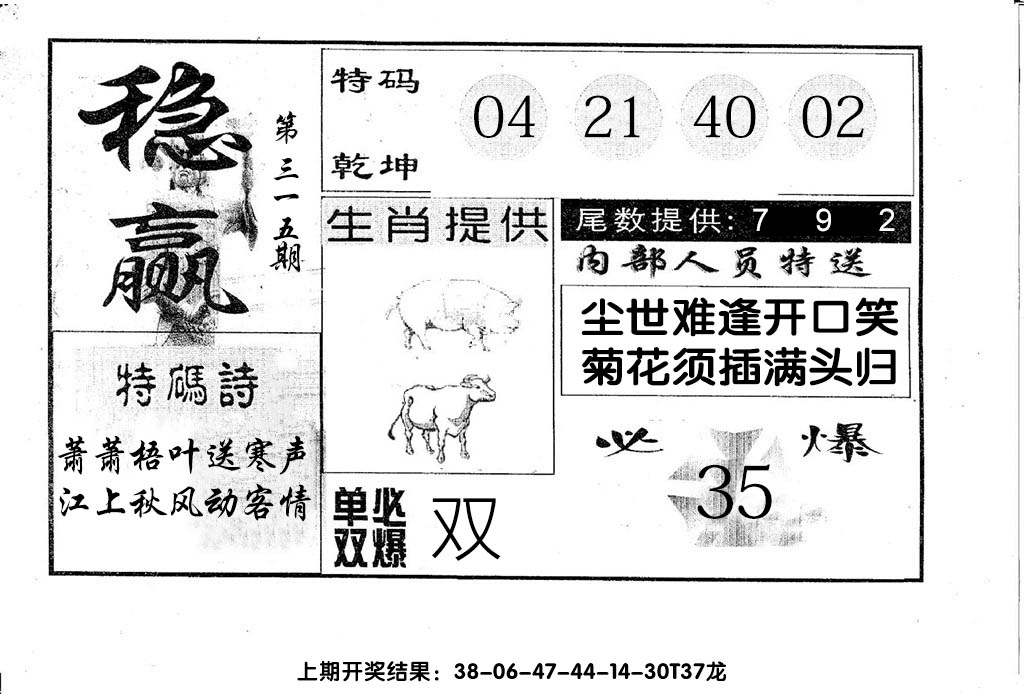 稳赢
第三一五期
特码
乾坤
04 21 40 02
生肖提供
尾数提供: 7 9 2
内部人员特送
尘世难逢开口笑
菊花须插满头归
特碼詩
萧萧梧叶送寒声
江上秋风动客情
单双必爆
双
必爆
35
上期开奖结果：38-06-47-44-14-30T37龙